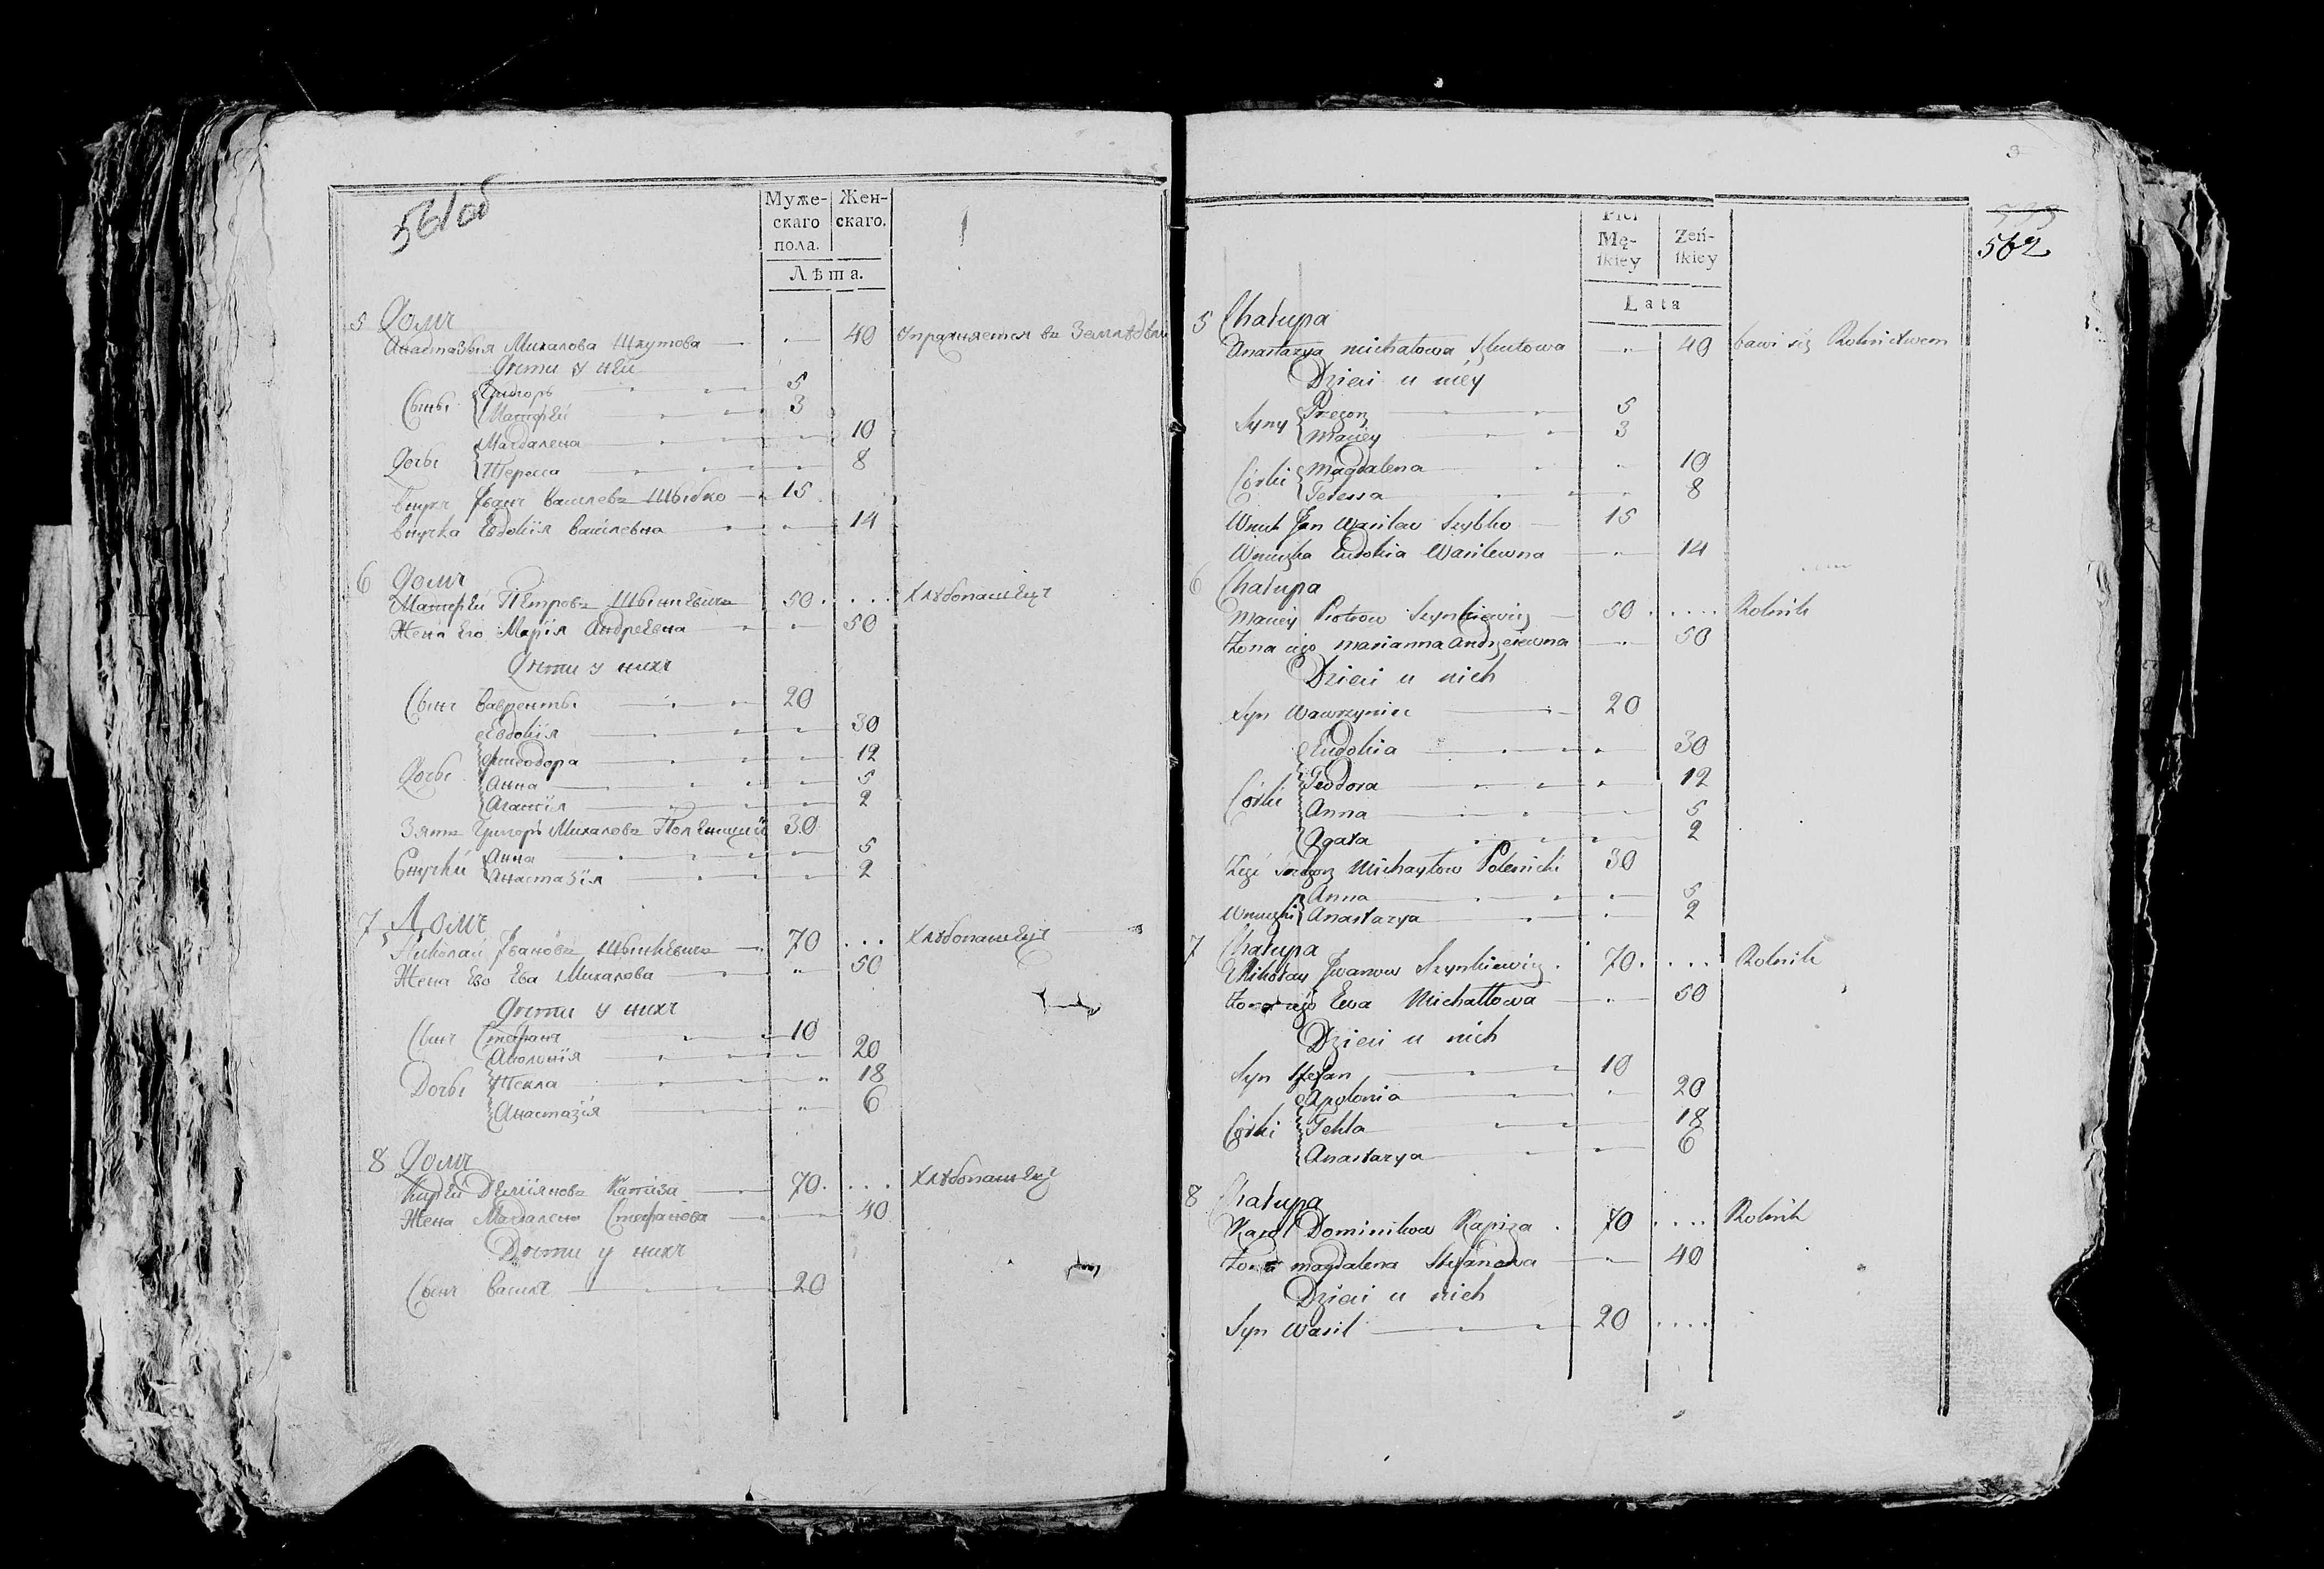 561об
Муже- Жен-
скаго скаго.
пола.
Лѣта.
5 Домъ
Анастазыя Михалова Шкутова 40 упражняется въ Земледѣли
Дѣти у ней
Сыны Григоръ 5
Матфей 3
Магдалена 10
Дочы Тересса 8
Внукъ Іванъ Василевъ Шыбко 15
Внучка Евдокія Василевна 14
6 Домъ
Матфей Петровъ Шынкевичъ 50 Хлѣбопашецъ
Жена Его Марія Андреевна 50
Дѣти у нихъ
Сынъ Вавренты 20
Евдокія 30
Феодора 12
Дочы Анна 5
Агафія 2
Зять Григоръ Михаловъ 30
Анна 5
Внучки Анастазія 2
7 Домъ
Николай Івановъ Шынкевичъ 70 Хлѣбопашецъ
Жена Его Ева Михалова 50
Дѣти у нихъ
Сынъ Стефанъ 10
Аполонія 20
Дочы Текла 18
Анастазія 6
8 Домъ
70 Хлѣбопашецъ
Жена Магдалена Стефанова 40
Дѣти у нихъ
Сынъ Василь 20
3
562
Płci
Mę- Żeń-
skiey skiey
Lata
5 Chałupa
Anastazya Michałowa Szkutowa 40 bawi się Rolnictwem
Dzieci u niey
Syny Grzegorz 5
Maciey 3
Córki Magdalena 10
Teressa 8
Wnuk Jan Wasilew Szybko 15
Wnuczka Eudokia Wasilewna 14
6 Chałupa
Maciey Piotrow Szynkiewicz 50 Rolnik
Żona iego Marianna Andrzeiewna 50
Dzieci u nich
Syn Wawrzyniec 20
Eudokia 30
Teodora 12
Córki Anna 5
Agata 2
Zięć Grzegorz Michayłow Polenicki 30
Anna 5
Wnuczki Anastazya 2
7 Chałupa
Mikołay Iwanow Szynkiewicz 70 Rolnik
Żona iego Ewa Michałłowa 50
Dzieci u nich
Syn Stefan 10
Apolonia 20
Córki Tekla 18
Anastazya 6
8 Chałupa
Karol Dominikow Kapiza 70 Rolnik
Żona Magdalena Stefanowa 40
Dzieci u nich
Syn Wasil 20